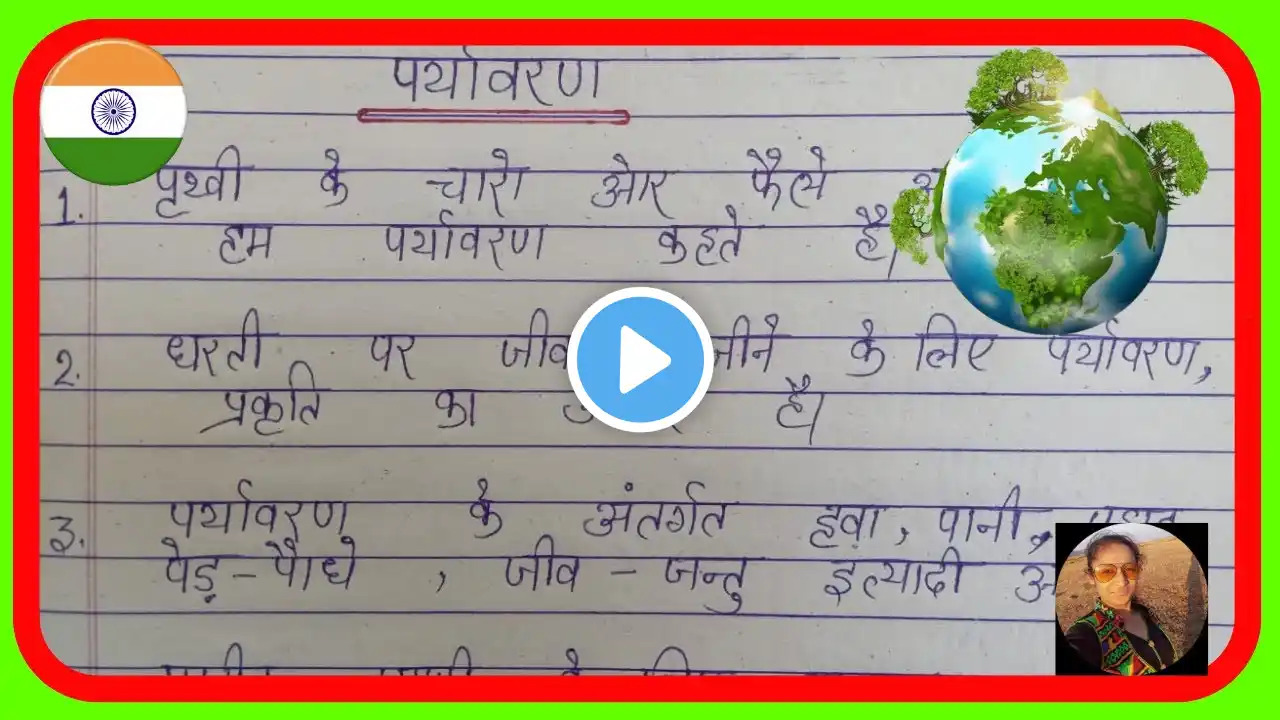 पर्यावरण
1. पृथ्वी के चारो ओर फैले
हम पर्यावरण कहते है।
2. धरती पर जीने के लिए पर्यावरण,
प्रकृति का है।
3. पर्यावरण के अंतर्गत हवा, पानी,
पेड़-पौधे, जीव-जन्तु इत्यादी